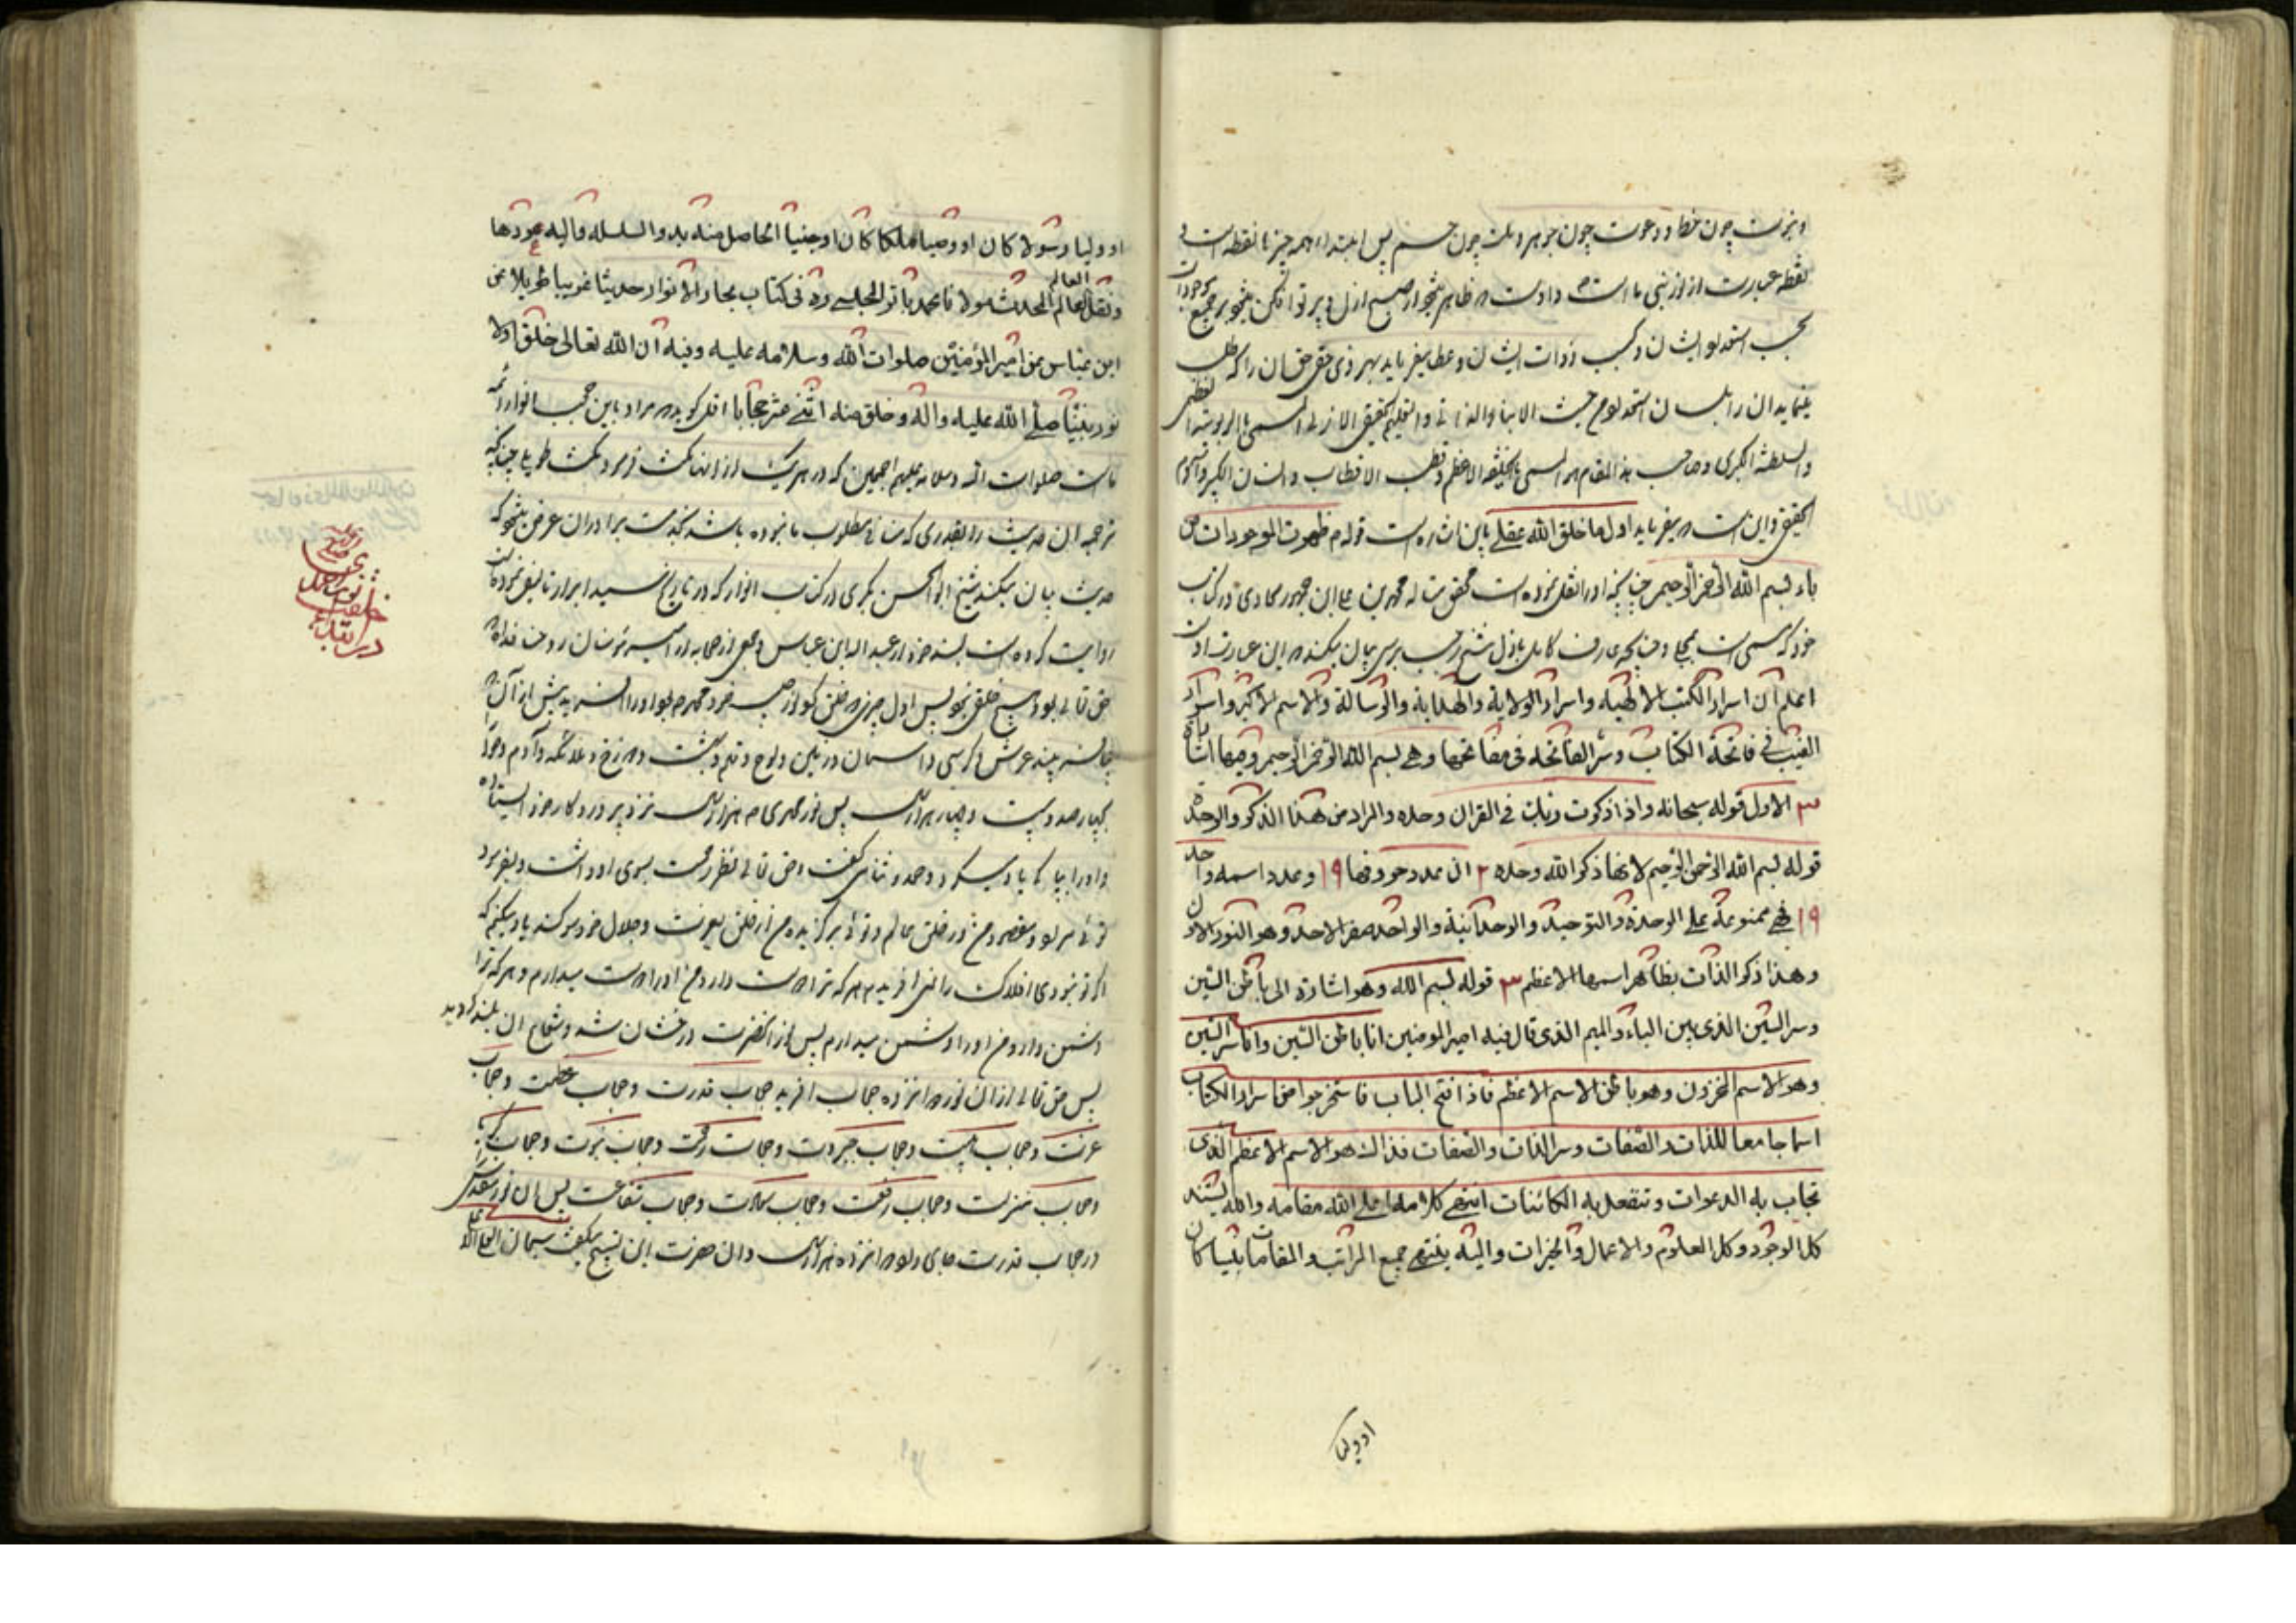 و نبوت چون خط و دعوت چون جوهر و ملت چون جسم پس ابتداء همه چیز با نقطه است
نقطه عبارت از نور نبی ما است و اوست که ظاهر میشود از صبح ازل و پرتو افکن میشود بر جمیع موجودات
بحسب استعداد ایشان و بحسب ذوات ایشان و عطا میفرماید بهر ذی حقی حق آن را که طلب
مینماید آن را بلسان استعداد من حیث الانباء الذاتی والتعلیم الحقیقی الازلی المسمی بالربوبیة العظمی
والسلطنة الکبری و صاحب هذا المقام هو المسمی بالخلیفة الاعظم و قطب الاقطاب والانسان الکبیر و آدم
الحقیقی و این است که میفرماید اول ما خلق الله عقلی باین اشاره است قوله م ظهرت الموجودات من
باء بسم الله الرحمن الرحیم چنانچه او را نقل نموده است محقق متاله محمد بن علی ابن جمهور در کتاب
خود که مسمی است بمجلی و چنانچه عارف کامل باذل شیخ رجب برسی بیان میکند در این عبارت
اعلم ان اسرار الکتب الالهیه واسرار الولایة والهدایة والرسالة والاسم الاکبر واسرار
الغیب فی فاتحة الکتاب وسر الفاتحه فی مفاتحها وهی بسم الله الرحمن الرحیم وفیها اشارة
٣ الاول قوله سبحانه واذا ذکرت ربک فی القران وحده والمراد من هذا الذکر والوحدة
قوله بسم الله الرحمن الرحیم لانها ذکر الله وحده ٢ ان عدد حروفها ١٩ وعدد اسمه واحد
١٩ فهی ممنوعة علی الوحدة والتوحید والوحدانیة والواحد صفر الاحد وهو النور الاول
وهذا ذکر الذات بظاهر اسمها الاعظم ٣ قوله بسم الله وهو اشارة الی باطن السین
وسر السین الذی بین الباء والمیم الذی قال فیه امیر المومنین انا باطن السین وانا سر السین
وهو الاسم المخزون وهو باطن الاسم الاعظم فاذا فتح الباب فاستخرجوا من اسرار الکتاب
اسما جامعا للذات والصفات وسر الذات والصفات فذالک هو الاسم الاعظم الذی
تجاب به الدعوات وتنفعل به الکائنات انتهی کلامه اعلی الله مقامه والیه یستند
کل الوجود وکل العلوم والاعمال والخیرات والیه ینتهی جمیع المراتب والمقامات نبیا کان
او ولیا
او ولیا رسولا کان او وصیا ملکا کان او جنیا الحاصل منه بدو السلسله والیه عودها
ونقل العالم المحدث مولانا محمد باقر المجلسی ره فی کتاب بحار الانوار حدیثا غریبا طویلا عن
ابن عباس عن امیر المؤمنین صلوات الله وسلامه علیه وفیه ان الله تعالی خلق اولا
نور نبینا صلی الله علیه واله وخلق منه اثنی عشر حجابا اقل گوید که مراد باین حجب انوار ائمه
ما است صلوات الله وسلامه علیهم اجمعین که در هر یک از اینها مکث فرمود مکث طویل چنانکه
ترجمه آن حدیث را بقدری که مناسب مطلوب ما بوده باشد بخدمت برادران عرض میشود که
حدیث بیان میکند شیخ ابو الحسن بکری در کتاب انوار که در تاریخ سید ابرار تالیف نموده
روایت کرده است بسند خود از عبد الله ابن عباس و جمعی از صحابه از امیر مؤمنان روحی فداه
حق تعالی بود و هیچ خلقی نبود پس اول چیزی که خلق کرد نور حبیب خود محمد م بود او را آفرید پیش از آن
بیافریند عرش و کرسی و آسمان و زمین و لوح و قلم و بهشت و دوزخ و ملائکه و آدم و حوا
بچهار صد و بیست و چهار هزار سال پس نور محمدی م هزار سال نزد پروردگار خود ایستاده
و او را بپاکی یاد میکرد و حمد و ثنا میگفت و حق تعالی نظر رحمت بسوی او داشت و میفرمود
توئی مراد و مقصود من در خلق عالم و توئی برگزیده من از خلق بعزت و جلال خود سوگند یاد میکنم که
اگر تو نبودی افلاک را نمی آفریدم هر که ترا دوست دارد من او را دوست میدارم و هر که ترا
دشمن دارد من او را دشمن میدارم پس نور آنحضرت درخشان شد و شعاع آن بلند گردید
پس حق تعالی از آن نور دوازده حجاب آفرید حجاب قدرت و حجاب عظمت و حجاب
عزت و حجاب هیبت و حجاب جبروت و حجاب رحمت و حجاب نبوت و حجاب کبریا
و حجاب منزلت و حجاب رفعت و حجاب سعادت و حجاب شفاعت پس آن نور مقدس
در حجاب قدرت جای داد دوازده هزار سال و آن حضرت این تسبیح میگفت سبحان العلی الاعلی